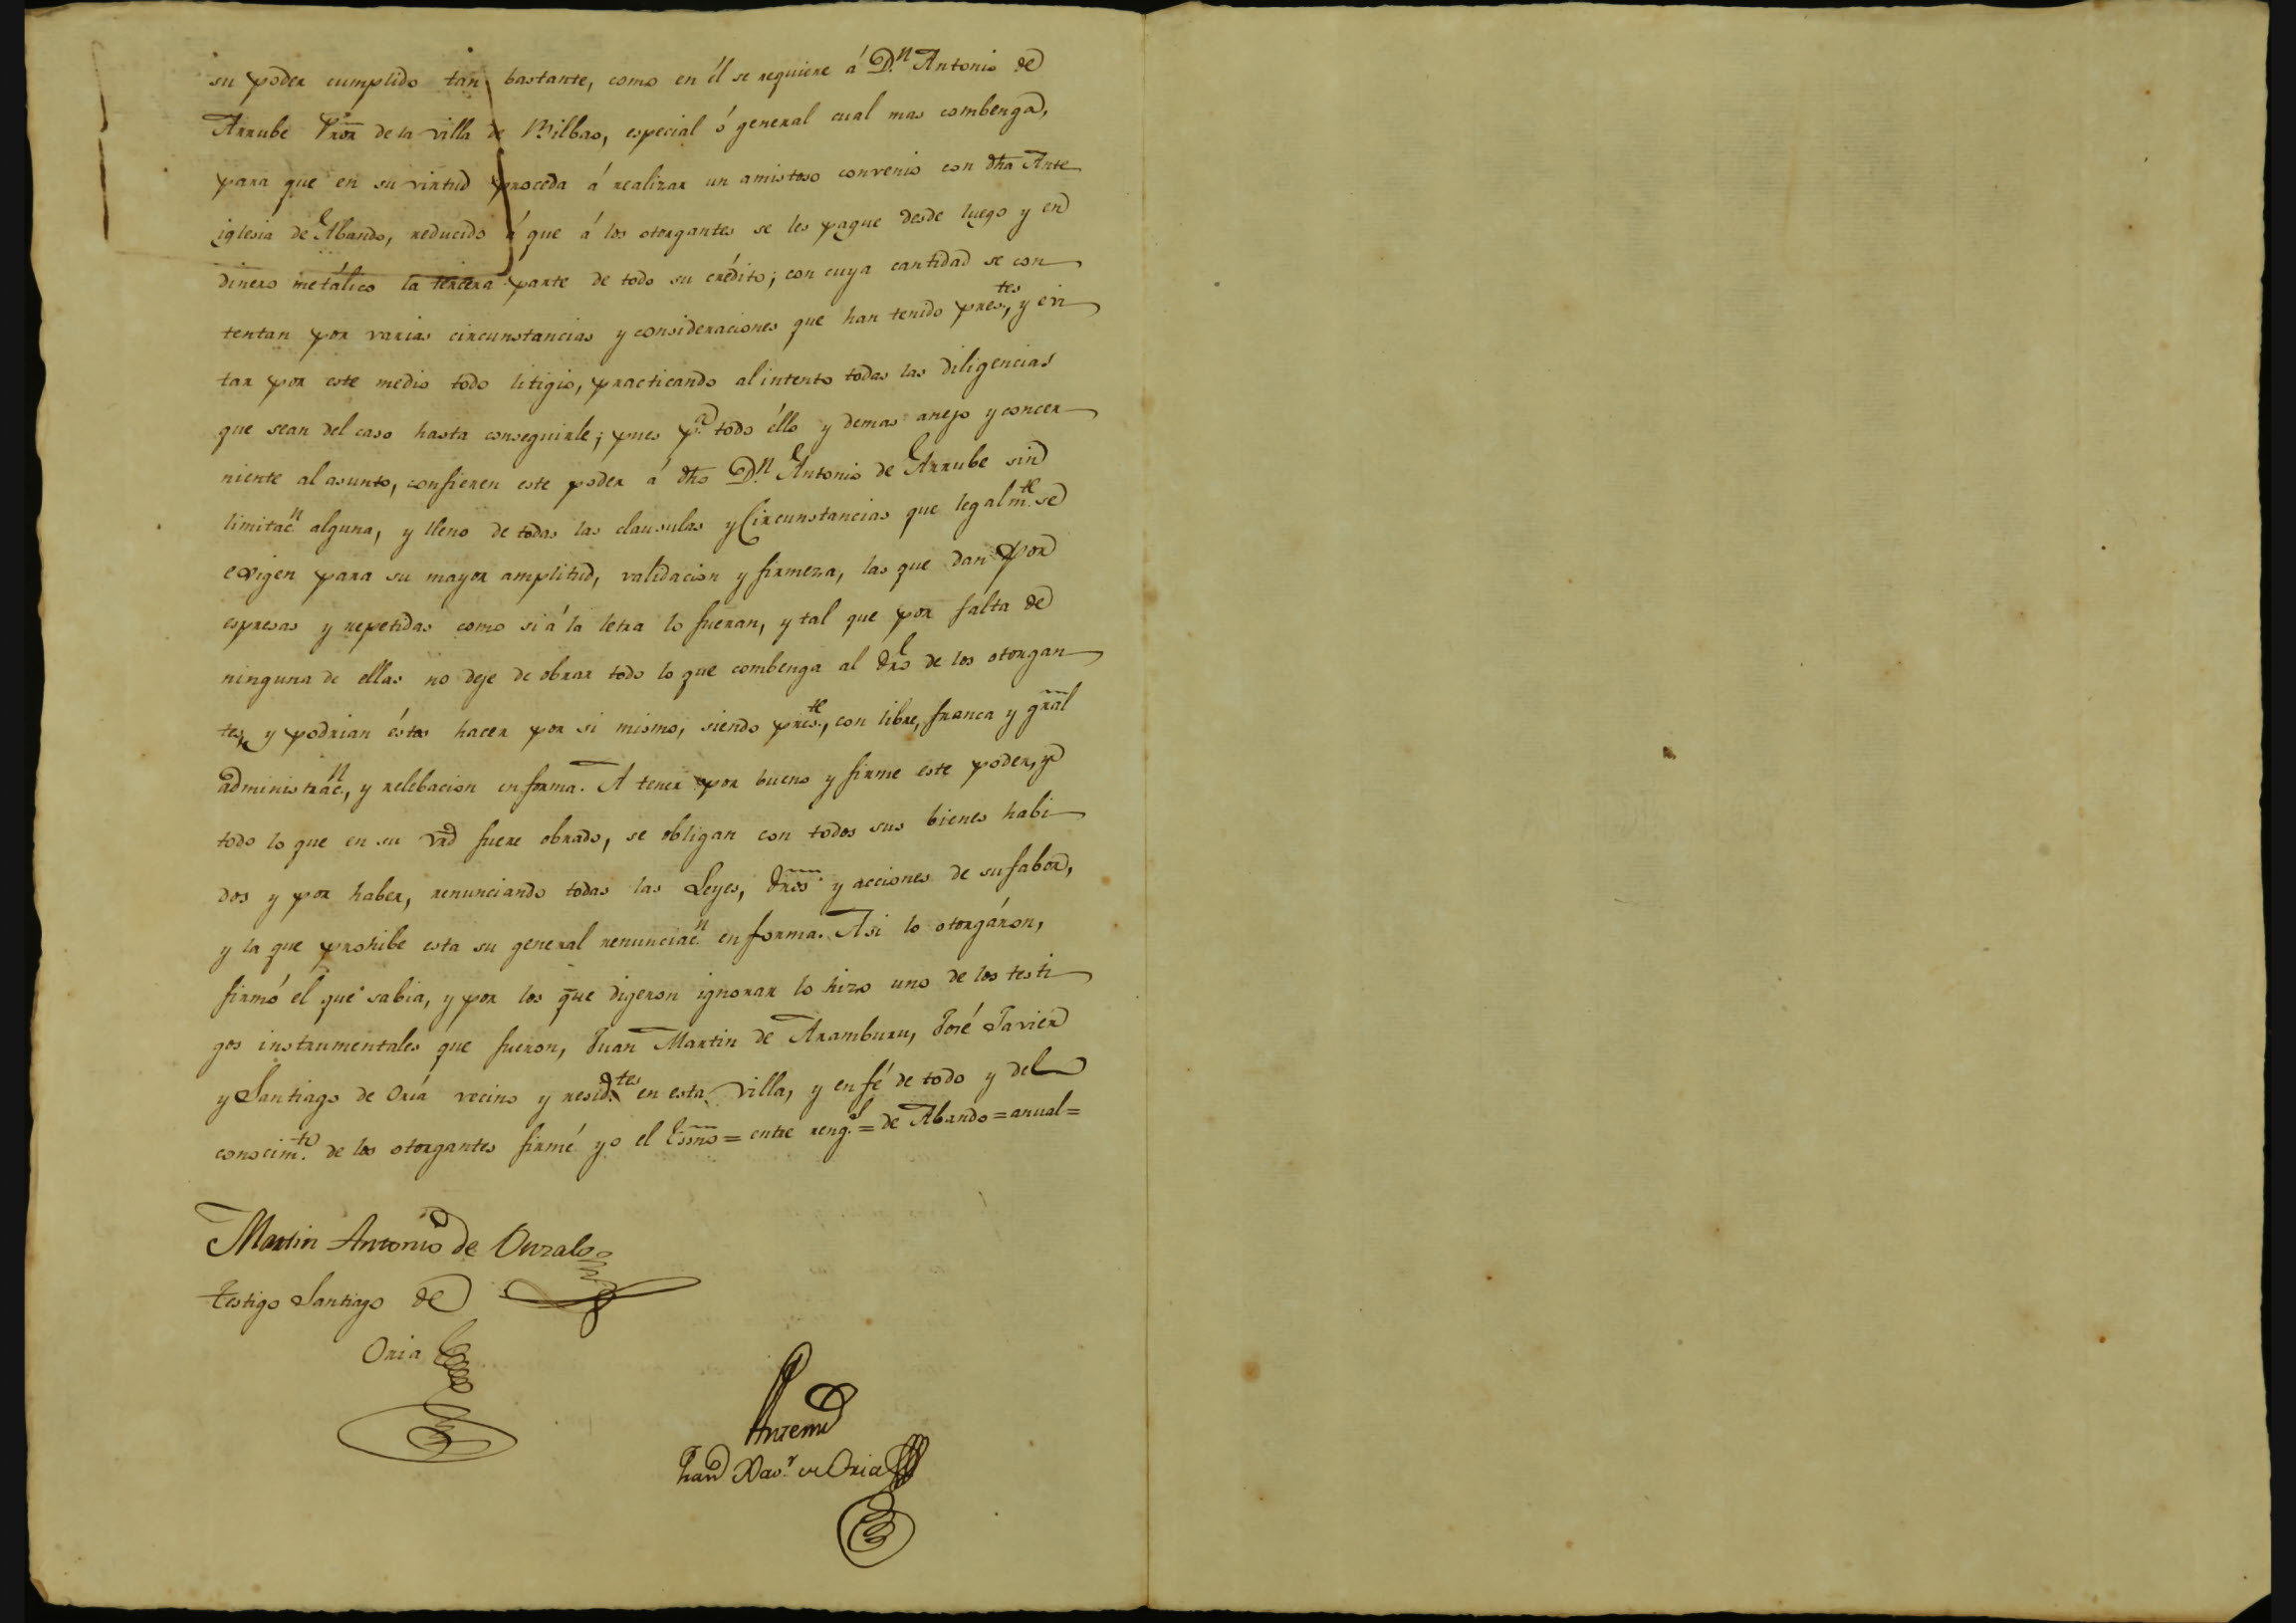 su poder cumplido tan bastante, como en él se requiere á D.n Antonio de
Arrube Vror de la villa de Bilbao, especial ó general cual mas combenga,
para que en su virtud proceda á realizar un amistoso convenio con dha Ante
iglesia de Abando, reducido á que á los otorgantes se les pague desde luego y en
dinero metálico la tercera parte de todo su crédito; con cuya cantidad se con
tentan por varias circunstancias y consideraciones que han tenido pres.tes, y evi
tar por este medio todo litigio, practicando al intento todas las diligencias
que sean del caso hasta conseguirle; pues p.a todo éllo y demas anejo y concer
niente al asunto, confieren este poder á dho D.n Antonio de Arrube sin
limitac.n alguna, y lleno de todas las clausulas y Circunstancias que legalm.te se
exigen para su mayor amplitud, validacion y firmeza, las que dan por
espresas y repetidas como si á la letra lo fueran, y tal que por falta de
ninguna de ellas no deje de obrar todo lo que combenga al dro de los otorgan
tes, y podrian éstos hacer por si mismo, siendo pres.te, con libre, franca y gral
administrac.n, y relebacion en forma. A tener por bueno y firme este poder, y
todo lo que en su vrd fuere obrado, se obligan con todos sus bienes habi
dos y por haber, renunciando todas las Leyes, dros y acciones de su fabor,
y la que prohibe esta su general renunciac.n en forma. Asi lo otorgáron,
firmó el que sabia, y por los que digeron ignorar lo hizo uno de los testi
gos instrumentales que fueron, Juan Martin de Aramburu, José Javier
y Santiago de Oria vecino y resid.tes en esta villa, y en fé de todo y del
conocim.to de los otorgantes firmé yo el Essno = entre reng.s = de Abando = anual =
Martin Antonio de Ouzalo
Testigo Santiago de
Oria
Antemi
Juan Xav.r de Oria